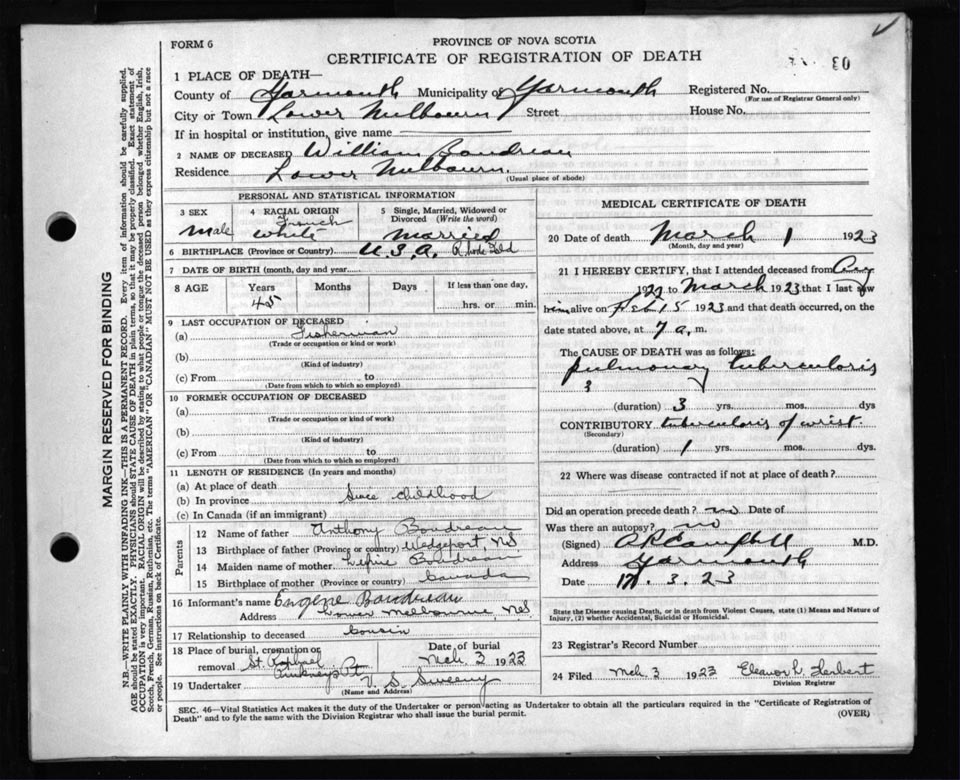 FORM 6
PROVINCE OF NOVA SCOTIA
CERTIFICATE OF REGISTRATION OF DEATH
1 PLACE OF DEATH—
County of Yarmouth Municipality of Yarmouth Registered No.
(For use of Registrar General only)
City or Town Lower Melbourn Street House No.
If in hospital or institution, give name
2 NAME OF DECEASED William Boudreau
Residence Lower Melbourn.
(Usual place of abode)
MARGIN RESERVED FOR BINDING
N.B.—WRITE PLAINLY WITH UNFADING INK—THIS IS A PERMANENT RECORD. Every item of information should be carefully supplied.
AGE should be stated EXACTLY. PHYSICIANS should STATE CAUSE OF DEATH in plain terms, so that it may be properly classified. Exact statement of
OCCUPATION is very important. RACIAL ORIGIN will be described by stating to what people or tongue the deceased person belonged whether English, Irish,
Scotch, French, German, Russian, Ruthenian, etc. The terms "AMERICAN" OR "CANADIAN" MUST NOT BE USED as they express citizenship but not a race
or people. See instructions on back of Certificate.
PERSONAL AND STATISTICAL INFORMATION
3 SEX 4 RACIAL ORIGIN 5 Single, Married, Widowed or
Divorced (Write the word)
Male French white Married
6 BIRTHPLACE (Province or Country) U.S.A. Rhode Isld
7 DATE OF BIRTH (month, day and year)
8 AGE Years Months Days If less than one day,
45 hrs. or min.
9 LAST OCCUPATION OF DECEASED
(a) Fisherman
(Trade or occupation or kind of work)
(b)
(Kind of industry)
(c) From to
(Date from which to which so employed)
10 FORMER OCCUPATION OF DECEASED
(a)
(Trade or occupation or kind of work)
(b)
(Kind of industry)
(c) From to
(Date from which to which so employed)
11 LENGTH OF RESIDENCE (In years and months)
(a) At place of death
(b) In province Since childhood
(c) In Canada (if an immigrant)
Parents
12 Name of father Anthony Boudreau
13 Birthplace of father (Province or country) Wedgeport, NS
14 Maiden name of mother Boudreau
15 Birthplace of mother (Province or country) Canada
16 Informant's name Eugene Boudreau
Address Lower Melbourne, NS
17 Relationship to deceased Cousin
18 Place of burial, cremation or Date of burial
removal St. Raphael Pinkneys Pt Mch 3 1923
19 Undertaker V. S. Sweeny
(Name and Address)
MEDICAL CERTIFICATE OF DEATH
20 Date of death March 1 1923
(Month, day and year)
21 I HEREBY CERTIFY, that I attended deceased from Aug
to March 1923 that I last saw
him alive on Feb 15 1923 and that death occurred, on
date stated above, at 7 a, m.
The CAUSE OF DEATH was as follows:
pulmonary tuberculoris
3
(duration) 3 yrs. mos. dys
CONTRIBUTORY tuberculoris of wrist.
(Secondary)
(duration) 1 yrs. mos. dys.
22 Where was disease contracted if not at place of death?
Did an operation precede death? no Date of
Was there an autopsy? no
(Signed) Campbell M.D.
Address Yarmouth
Date . 3. 23
State the Disease causing Death, or in death from Violent Causes, state (1) Means and Nature of
Injury, (2) whether Accidental, Suicidal or Homicidal.
23 Registrar's Record Number
24 Filed Mch 3 1923 Eleanor L Herbert
Division Registrar
SEC. 46—Vital Statistics Act makes it the duty of the Undertaker or person acting as Undertaker to obtain all the particulars required in the "Certificate of Registration of
Death" and to fyle the same with the Division Registrar who shall issue the burial permit. (OVER)